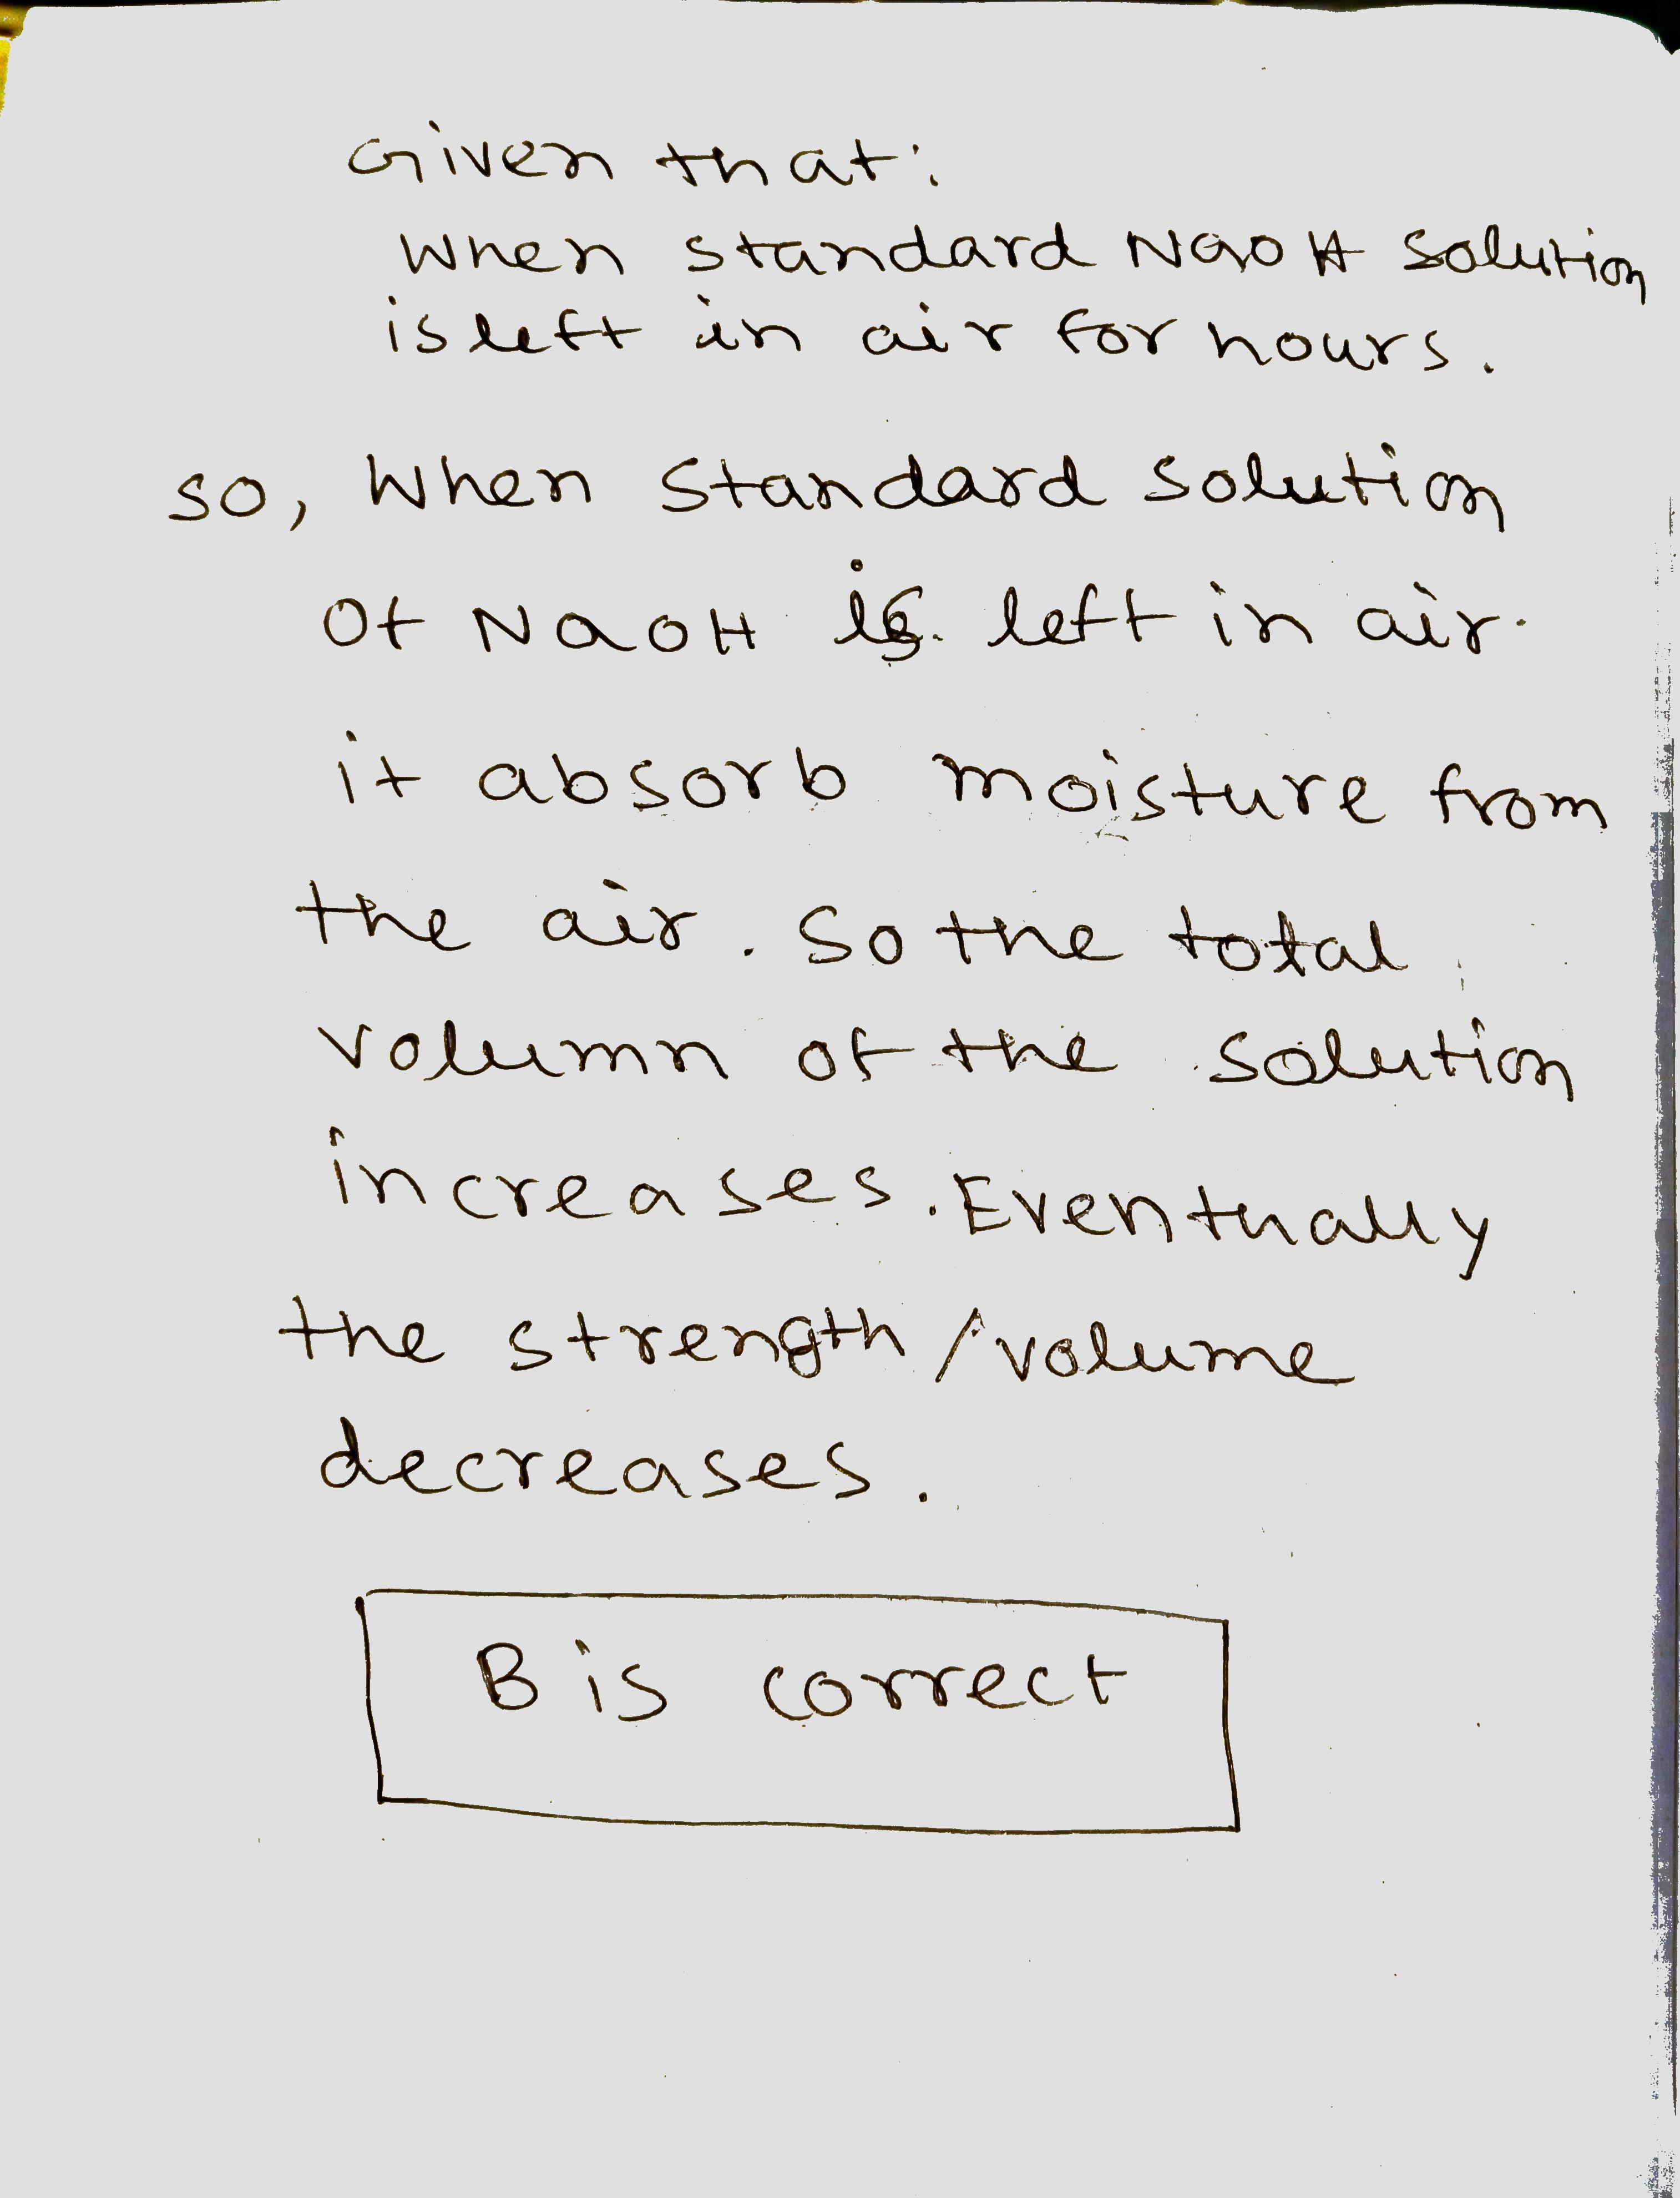 Given that:
When standard NaOH solution
is left in air for hours.
so, When standard solution
Of NaOH is left in air.
it absorb moisture from
the air. So the total
volumn of the solution
increases. Eventually
the strength/volume
decreases.
B is correct